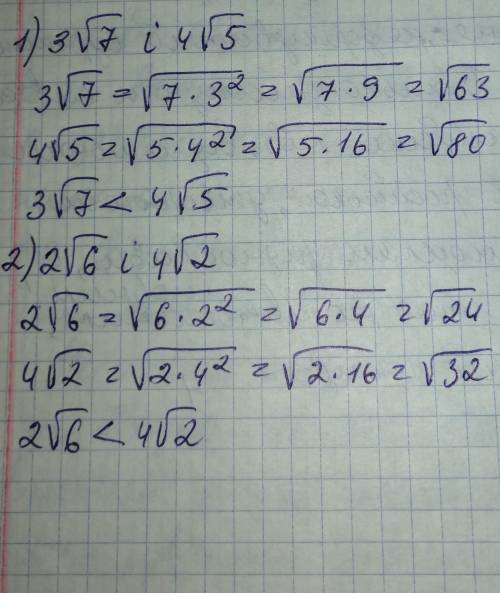 1) 3√7 і 4√5
3√7 = √(7·3²) = √(7·9) = √63
4√5 = √(5·4²) = √(5·16) = √80
3√7 < 4√5
2) 2√6 і 4√2
2√6 = √(6·2²) = √(6·4) = √24
4√2 = √(2·4²) = √(2·16) = √32
2√6 < 4√2